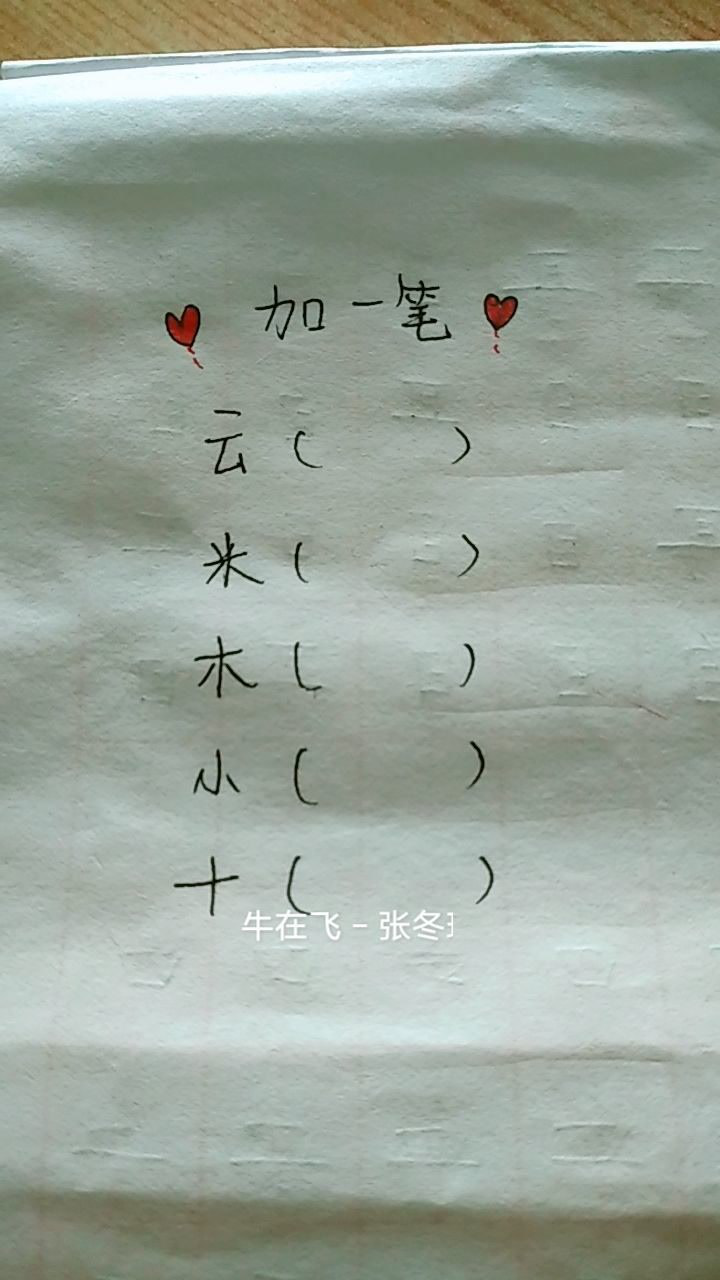 加一笔
云（ ）
米（ ）
木（ ）
小（ ）
十（ ）
牛在飞-张冬